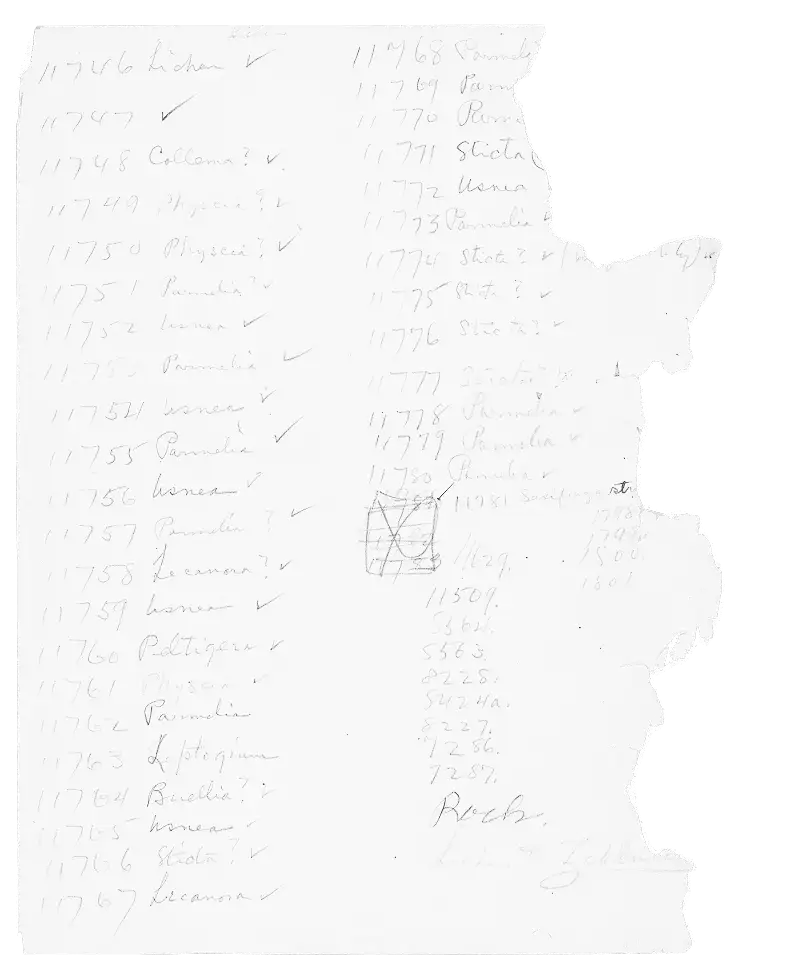 11746 Lichen ✓
11747 ✓
11748 Collema? ✓.
11749 Physcia? ✓
11750 Physcia? ✓
11751 Parmelia? ✓
11752 Usnea ✓
11753 Parmelia ✓
11754 Usnea ✓
11755 Parmelia ✓
11756 Usnea ✓
11757 Parmelia? ✓
11758 Lecanora? ✓
11759 Usnea ✓
11760 Peltigera ✓
11761 Physcia ✓
11762 Parmelia
11763 Leptogium
11764 Buellia? ✓
11765 Usnea ✓
11766 Sticta? ✓
11767 Lecanora ✓
11768 Parmel
11769 Parm
11770 Parm
11771 Sticta (
11772 Usnea
11773 Parmelia
11774 Sticta? ✓
11775 Sticta? ✓
11776 Sticta? ✓
11777
11778 Parmelia ✓
11779 Parmelia ✓
11780 Parmelia ✓
11781 Saxifraga str
11629.
11509.
5562.
5563.
8228.
5424a.
8227.
7286.
7287.
1800.
1801
Rock.